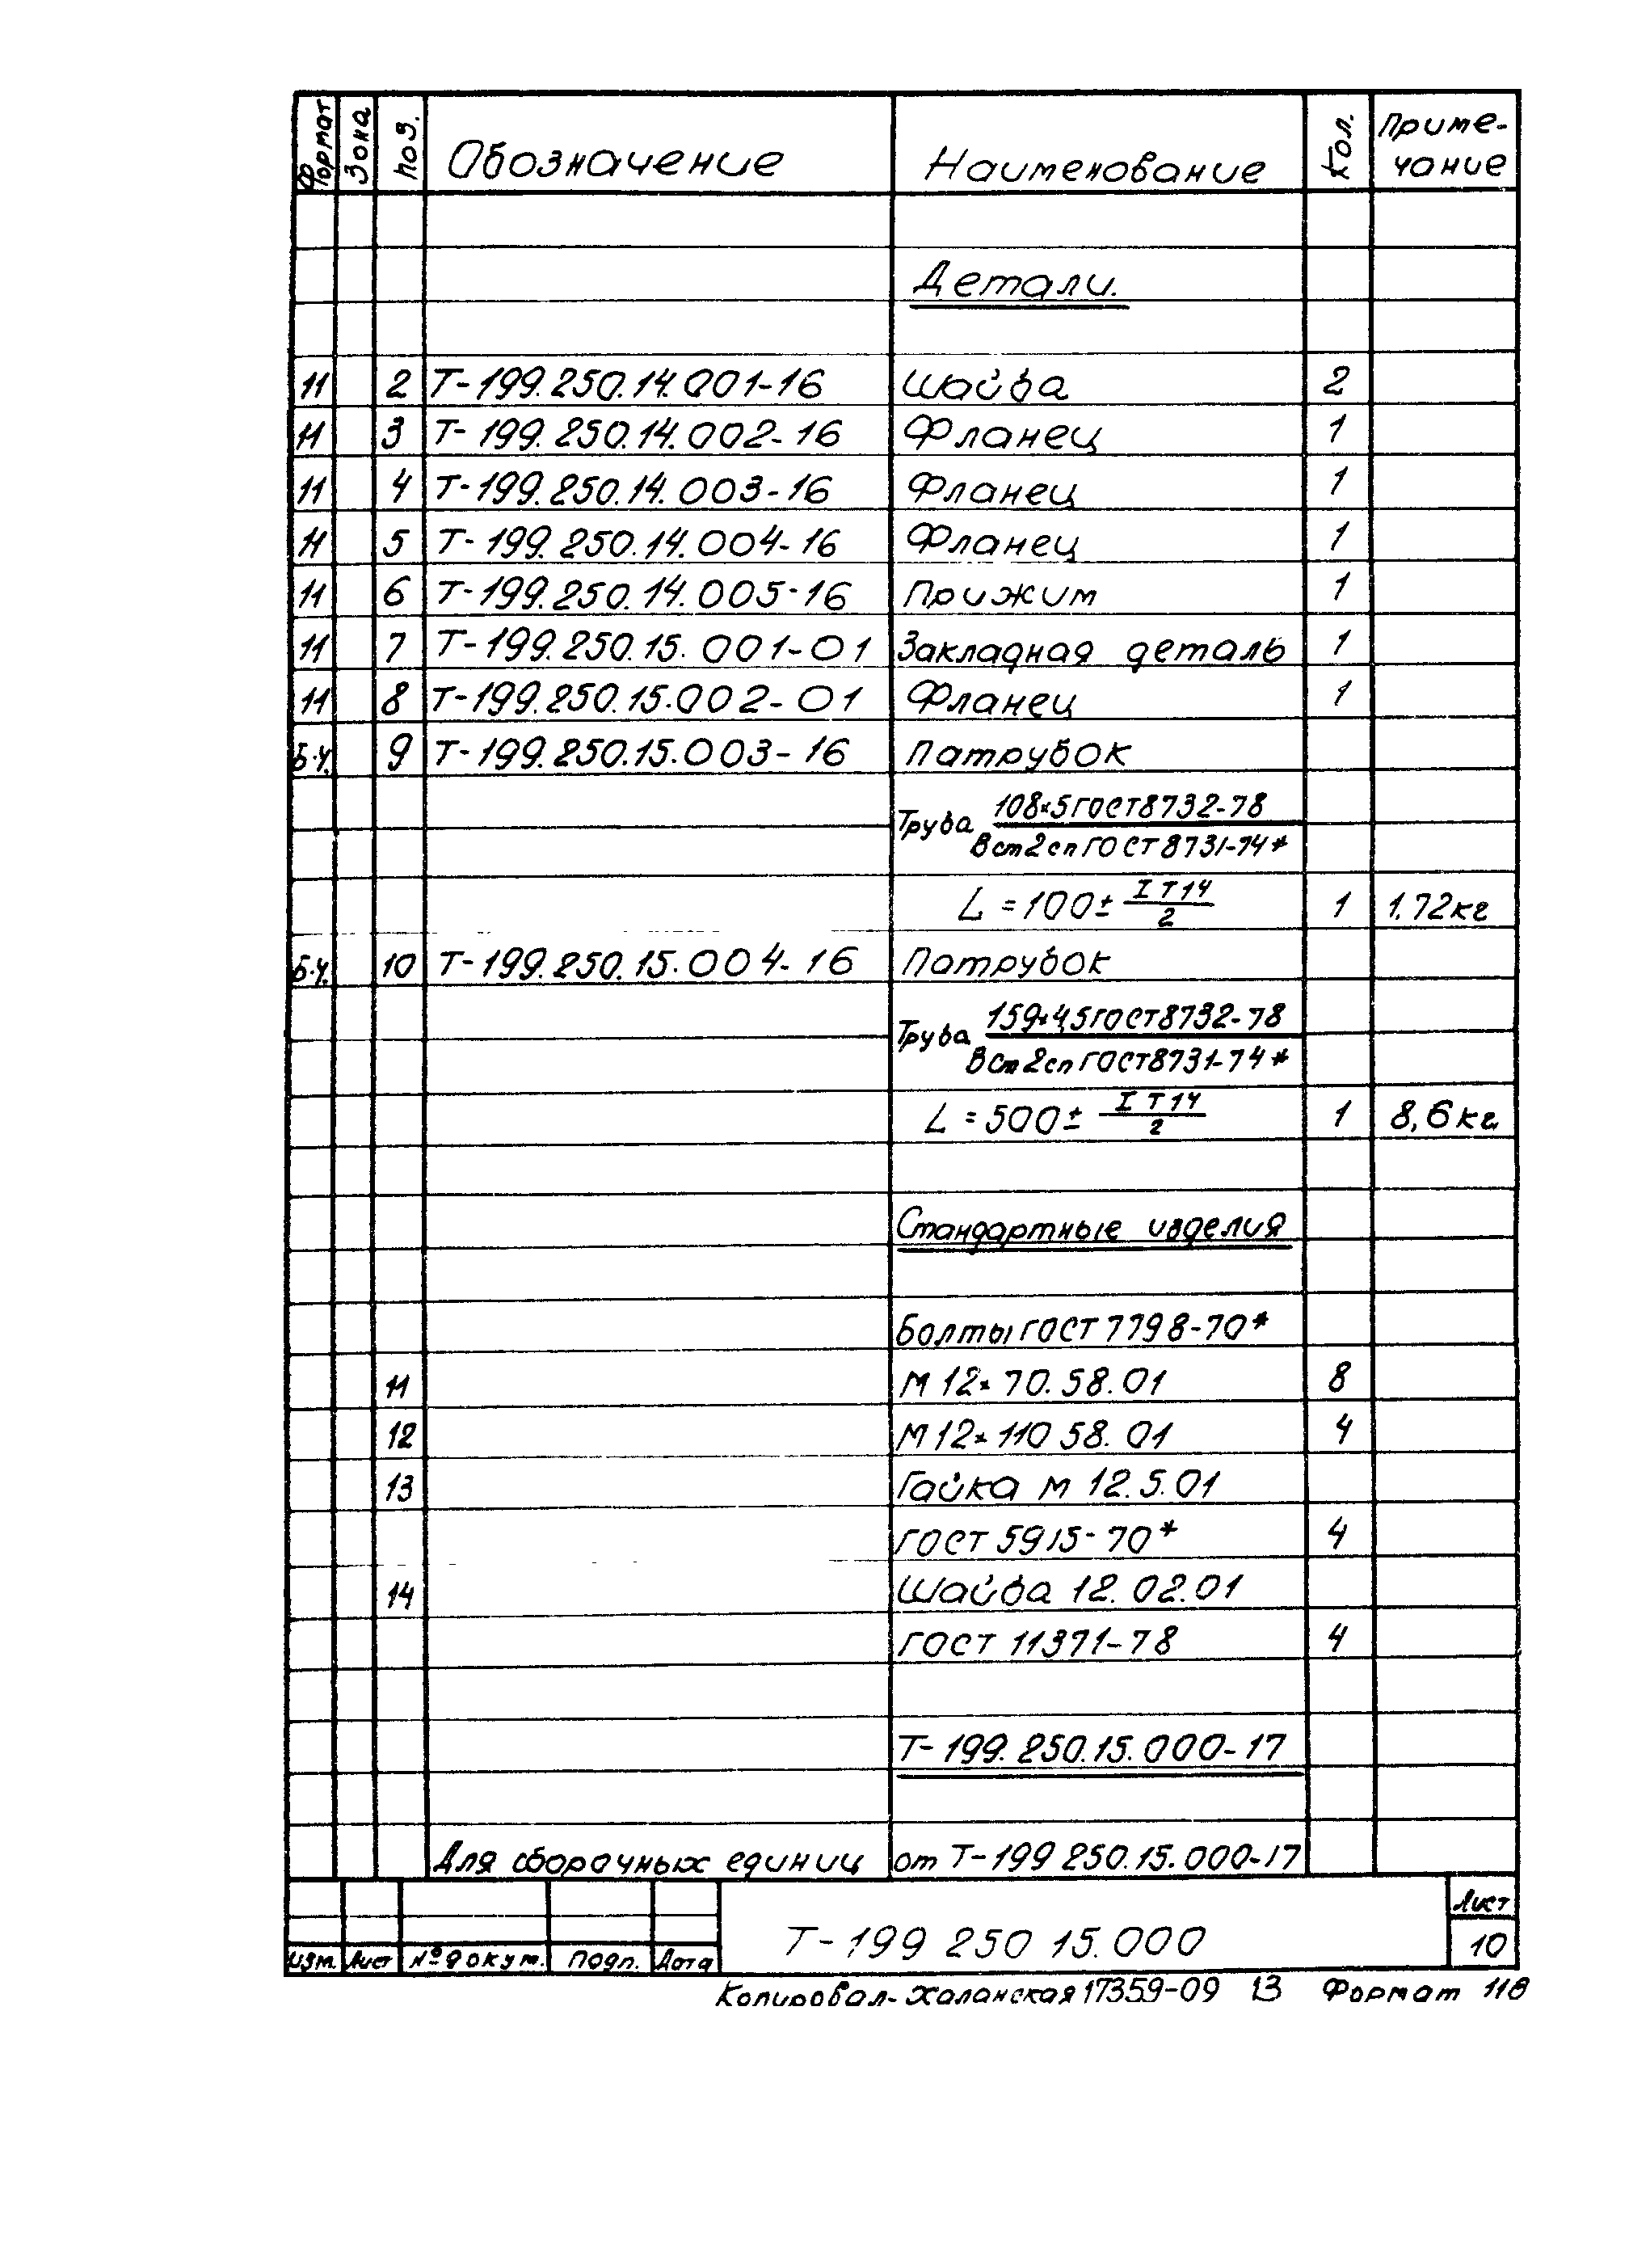 Формат Зона Поз. Обозначение Наименование Кол. Приме-
чание
Детали.
11 2 Т-199.250.14.001-16 Шайба 2
11 3 Т-199.250.14.002-16 Фланец 1
11 4 Т-199.250.14.003-16 Фланец 1
11 5 Т-199.250.14.004-16 Фланец 1
11 6 Т-199.250.14.005-16 Прижим 1
11 7 Т-199.250.15.001-01 Закладная деталь 1
11 8 Т-199.250.15.002-01 Фланец 1
Б.Ч. 9 Т-199.250.15.003-16 Патрубок
Труба 108×5 ГОСТ 8732-78
Вст2сп ГОСТ 8731-74*
L = 100 ± IT14/2 1 1.72кг
Б.Ч. 10 Т-199.250.15.004-16 Патрубок
Труба 159×4,5 ГОСТ 8732-78
Вст2сп ГОСТ 8731-74*
L = 500 ± IT14/2 1 8,6кг.
Стандартные изделия
Болты ГОСТ 7798-70*
11 М12×70.58.01 8
12 М12×110 58.01 4
13 Гайка М 12.5.01
ГОСТ 5915-70* 4
14 Шайба 12.02.01
ГОСТ 11371-78 4
Т-199.250.15.000-17
Для сборочных единиц от Т-199 250.15.000-17
Изм. Лист № докум. Подп. Дата
Т-199 250 15.000
Лист
10
Копировал-Халанская 17359-09 13 Формат 11в